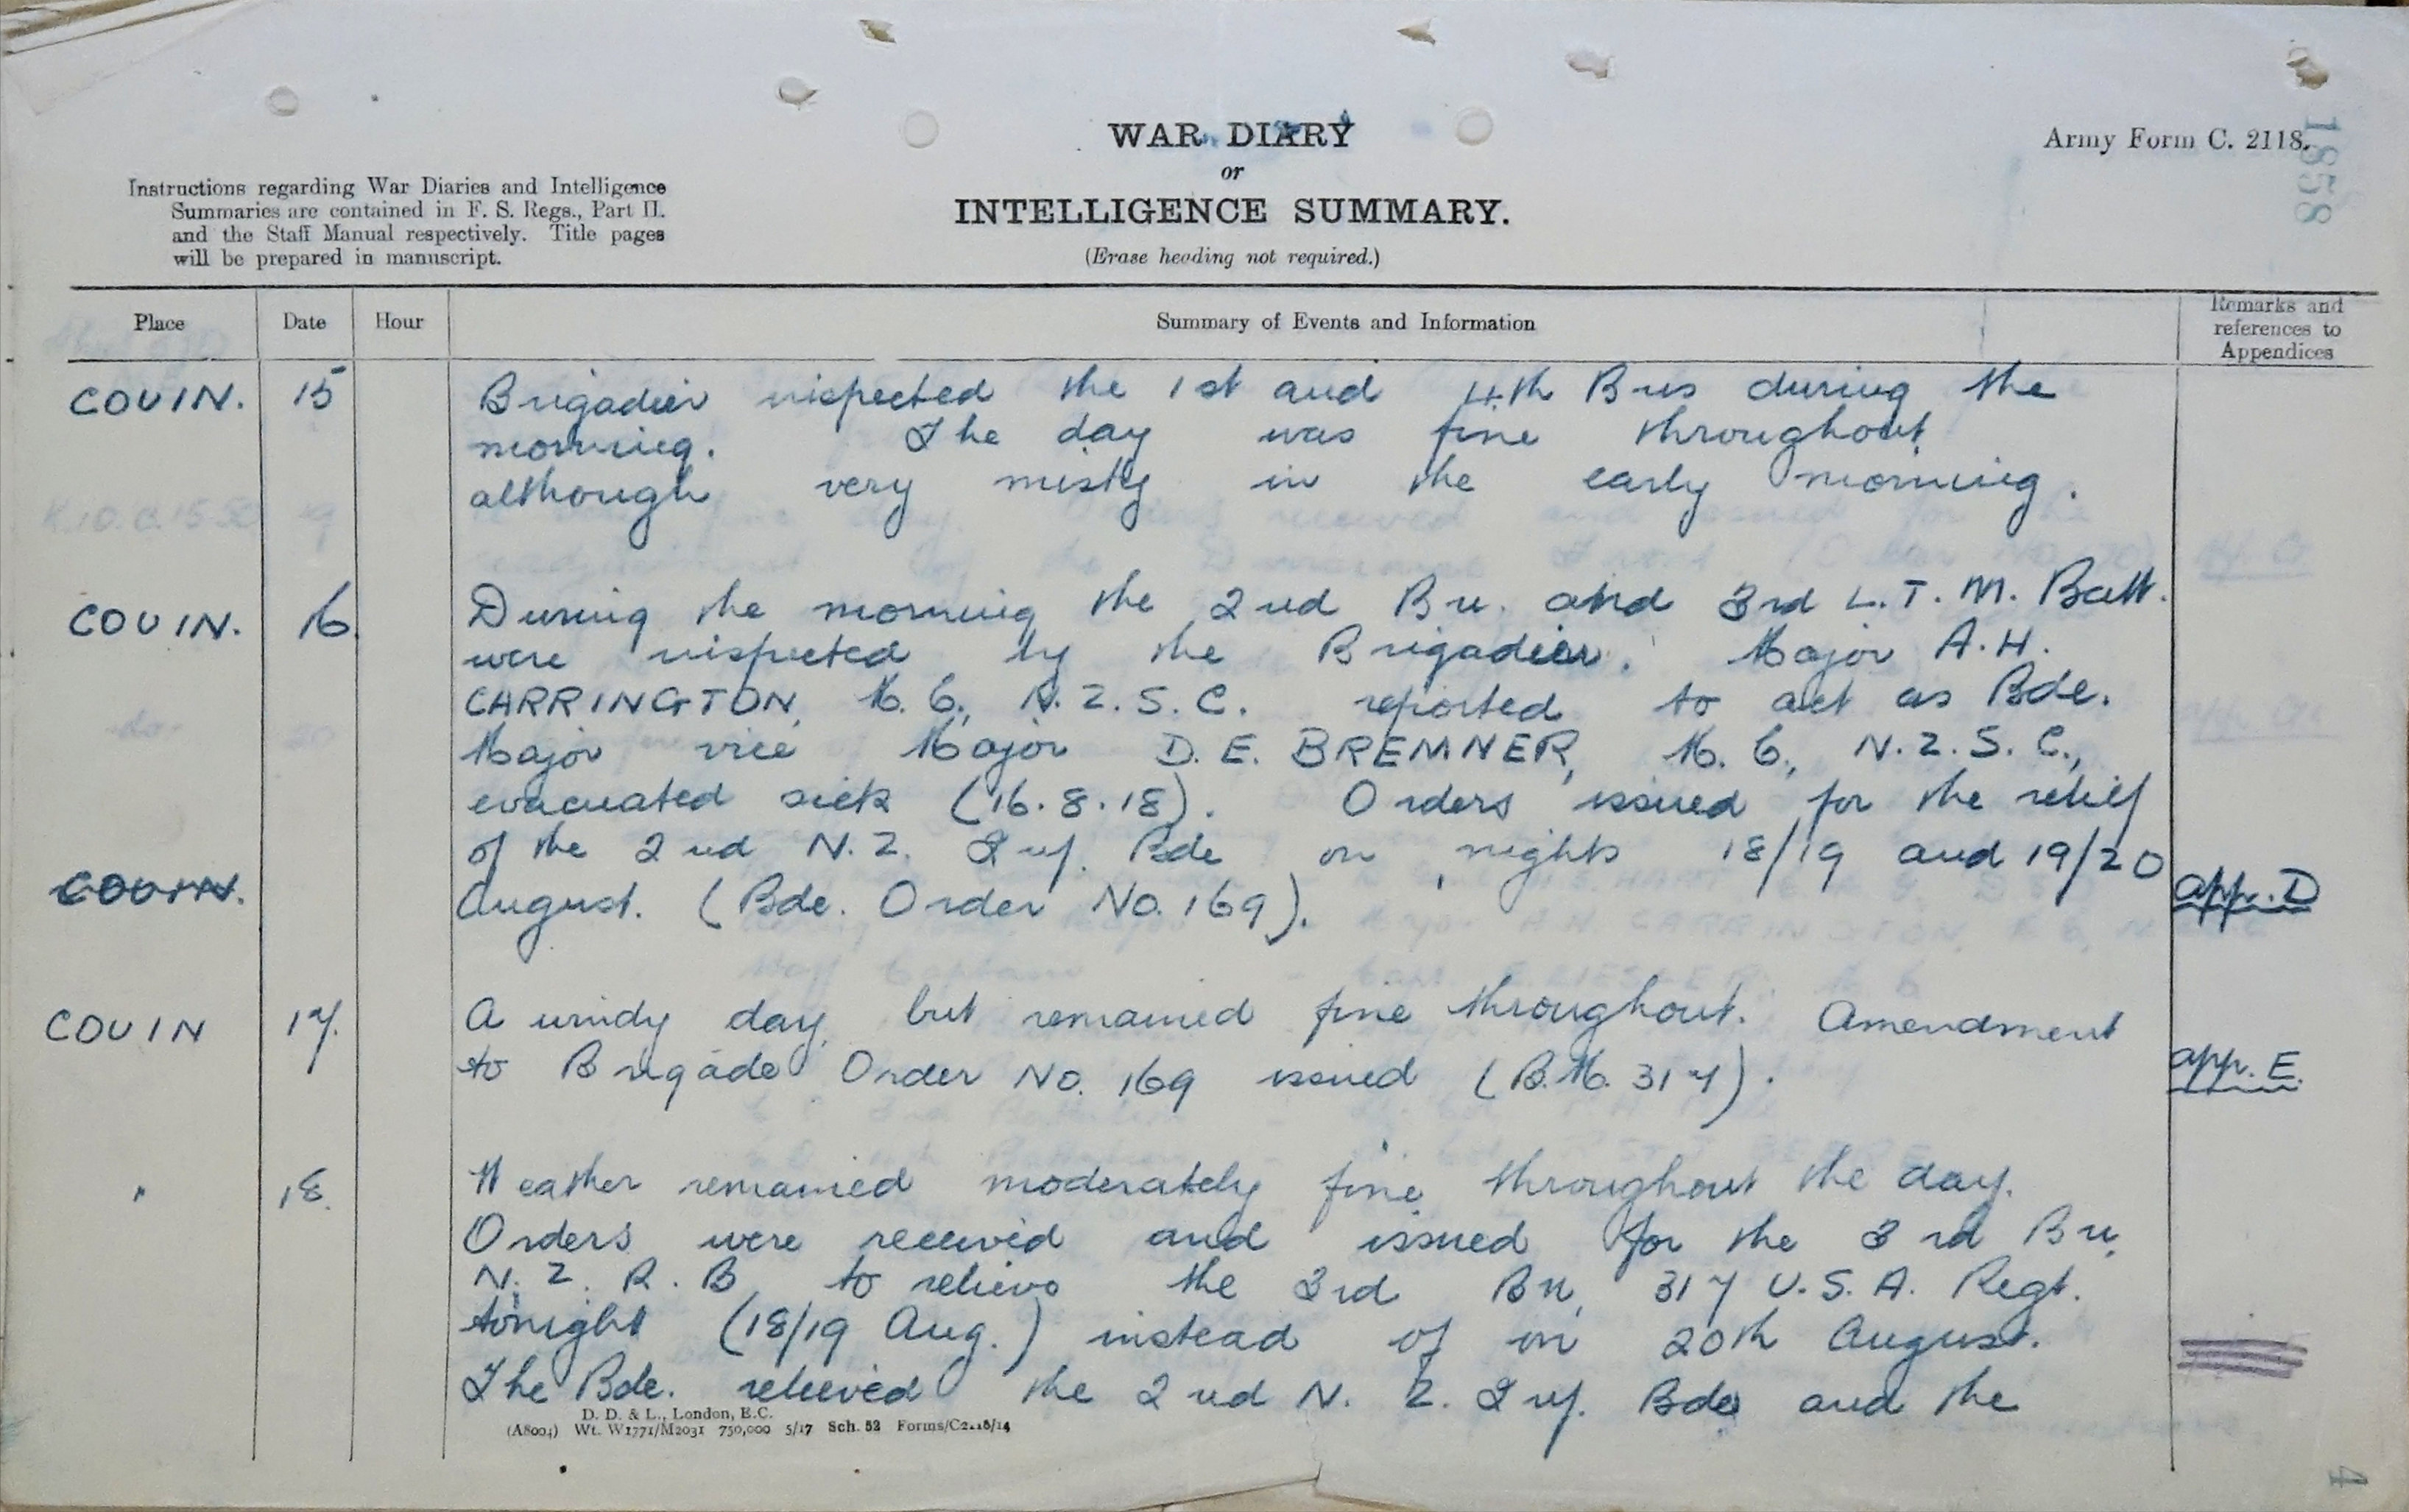 WAR DIARY
or
INTELLIGENCE SUMMARY.
(Erase heading not required.)
Army Form C. 2118.
1858
Instructions regarding War Diaries and Intelligence
Summaries are contained in F. S. Regs., Part II.
and the Staff Manual respectively. Title pages
will be prepared in manuscript.
Place Date Hour Summary of Events and Information Remarks and references to Appendices
COUIN. 15 Brigadier inspected the 1st and 4th Bns during the
morning. The day was fine throughout
although very misty in the early morning.
COUIN. 16 During the morning the 2nd Bn. and 3rd L.T.M. Batt.
were inspected by the Brigadier. Major A.H.
CARRINGTON, M.C., N.Z.S.C. reported to act as Bde.
Major vice Major D.E. BREMNER, M.C., N.Z.S.C.,
evacuated sick (16.8.18). Orders issued for the relief
of the 2nd N.Z. Inf. Bde on nights 18/19 and 19/20
COUIN. August. (Bde. Order No. 169). app. D
COUIN 17. A windy day, but remained fine throughout. Amendment
to Brigade Order No. 169 issued (B.M. 317). app. E.
" 18. Weather remained moderately fine throughout the day.
Orders were received and issued for the 3rd Bn,
N.Z.R.B to relieve the 3rd Bn, 317 U.S.A. Regt.
tonight (18/19 Aug.) instead of on 20th August.
The Bde. relieved the 2nd N.Z. Inf. Bde and the
D. D. & L., London, E.C.
(A8004) Wt. W1771/M2031 750,000 5/17 Sch. 52 Forms/C2118/14
4